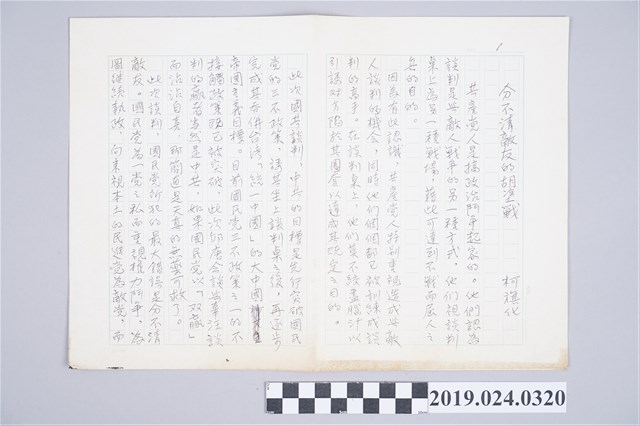 1
分不清敵友的胡塗戰
柯旗化
共產黨人是搞政治鬥爭起家的。他們認為
談判是與敵人戰爭的另一種方式。他們視談判
桌上為另一種戰場,藉此可達到不戰而屈人之
兵的目的。
因為有此認識,共產黨人特別重視造成與敵
人談判的機會,同時他們個個都已被訓練成談
判的高手。在談判桌上,他們莫不絞盡腦汁以
引誘對方陷於其圈套以達成其既定之目的。
此次國共談判,中共的目標是先行突破國民
黨的三不政策,誘其坐上談判桌之後,再逐步
完成其吞併台灣「統一中國」的大中國
帝國主義目標。目前國民黨三不政策之一的不
接觸政策既已被突破,此次邱唐會談與辜汪談
判的贏者當然是中共,如果國民黨以「双贏」
而沾沾自喜,那簡直是天真的無藥可救了。
此次談判,國民黨所犯的最大錯誤是分不清
敵友。國民黨為一黨之私而重視權力鬥爭,為
圖繼續執政,向來視本土的民進黨為敵黨。而
2019.024.0320